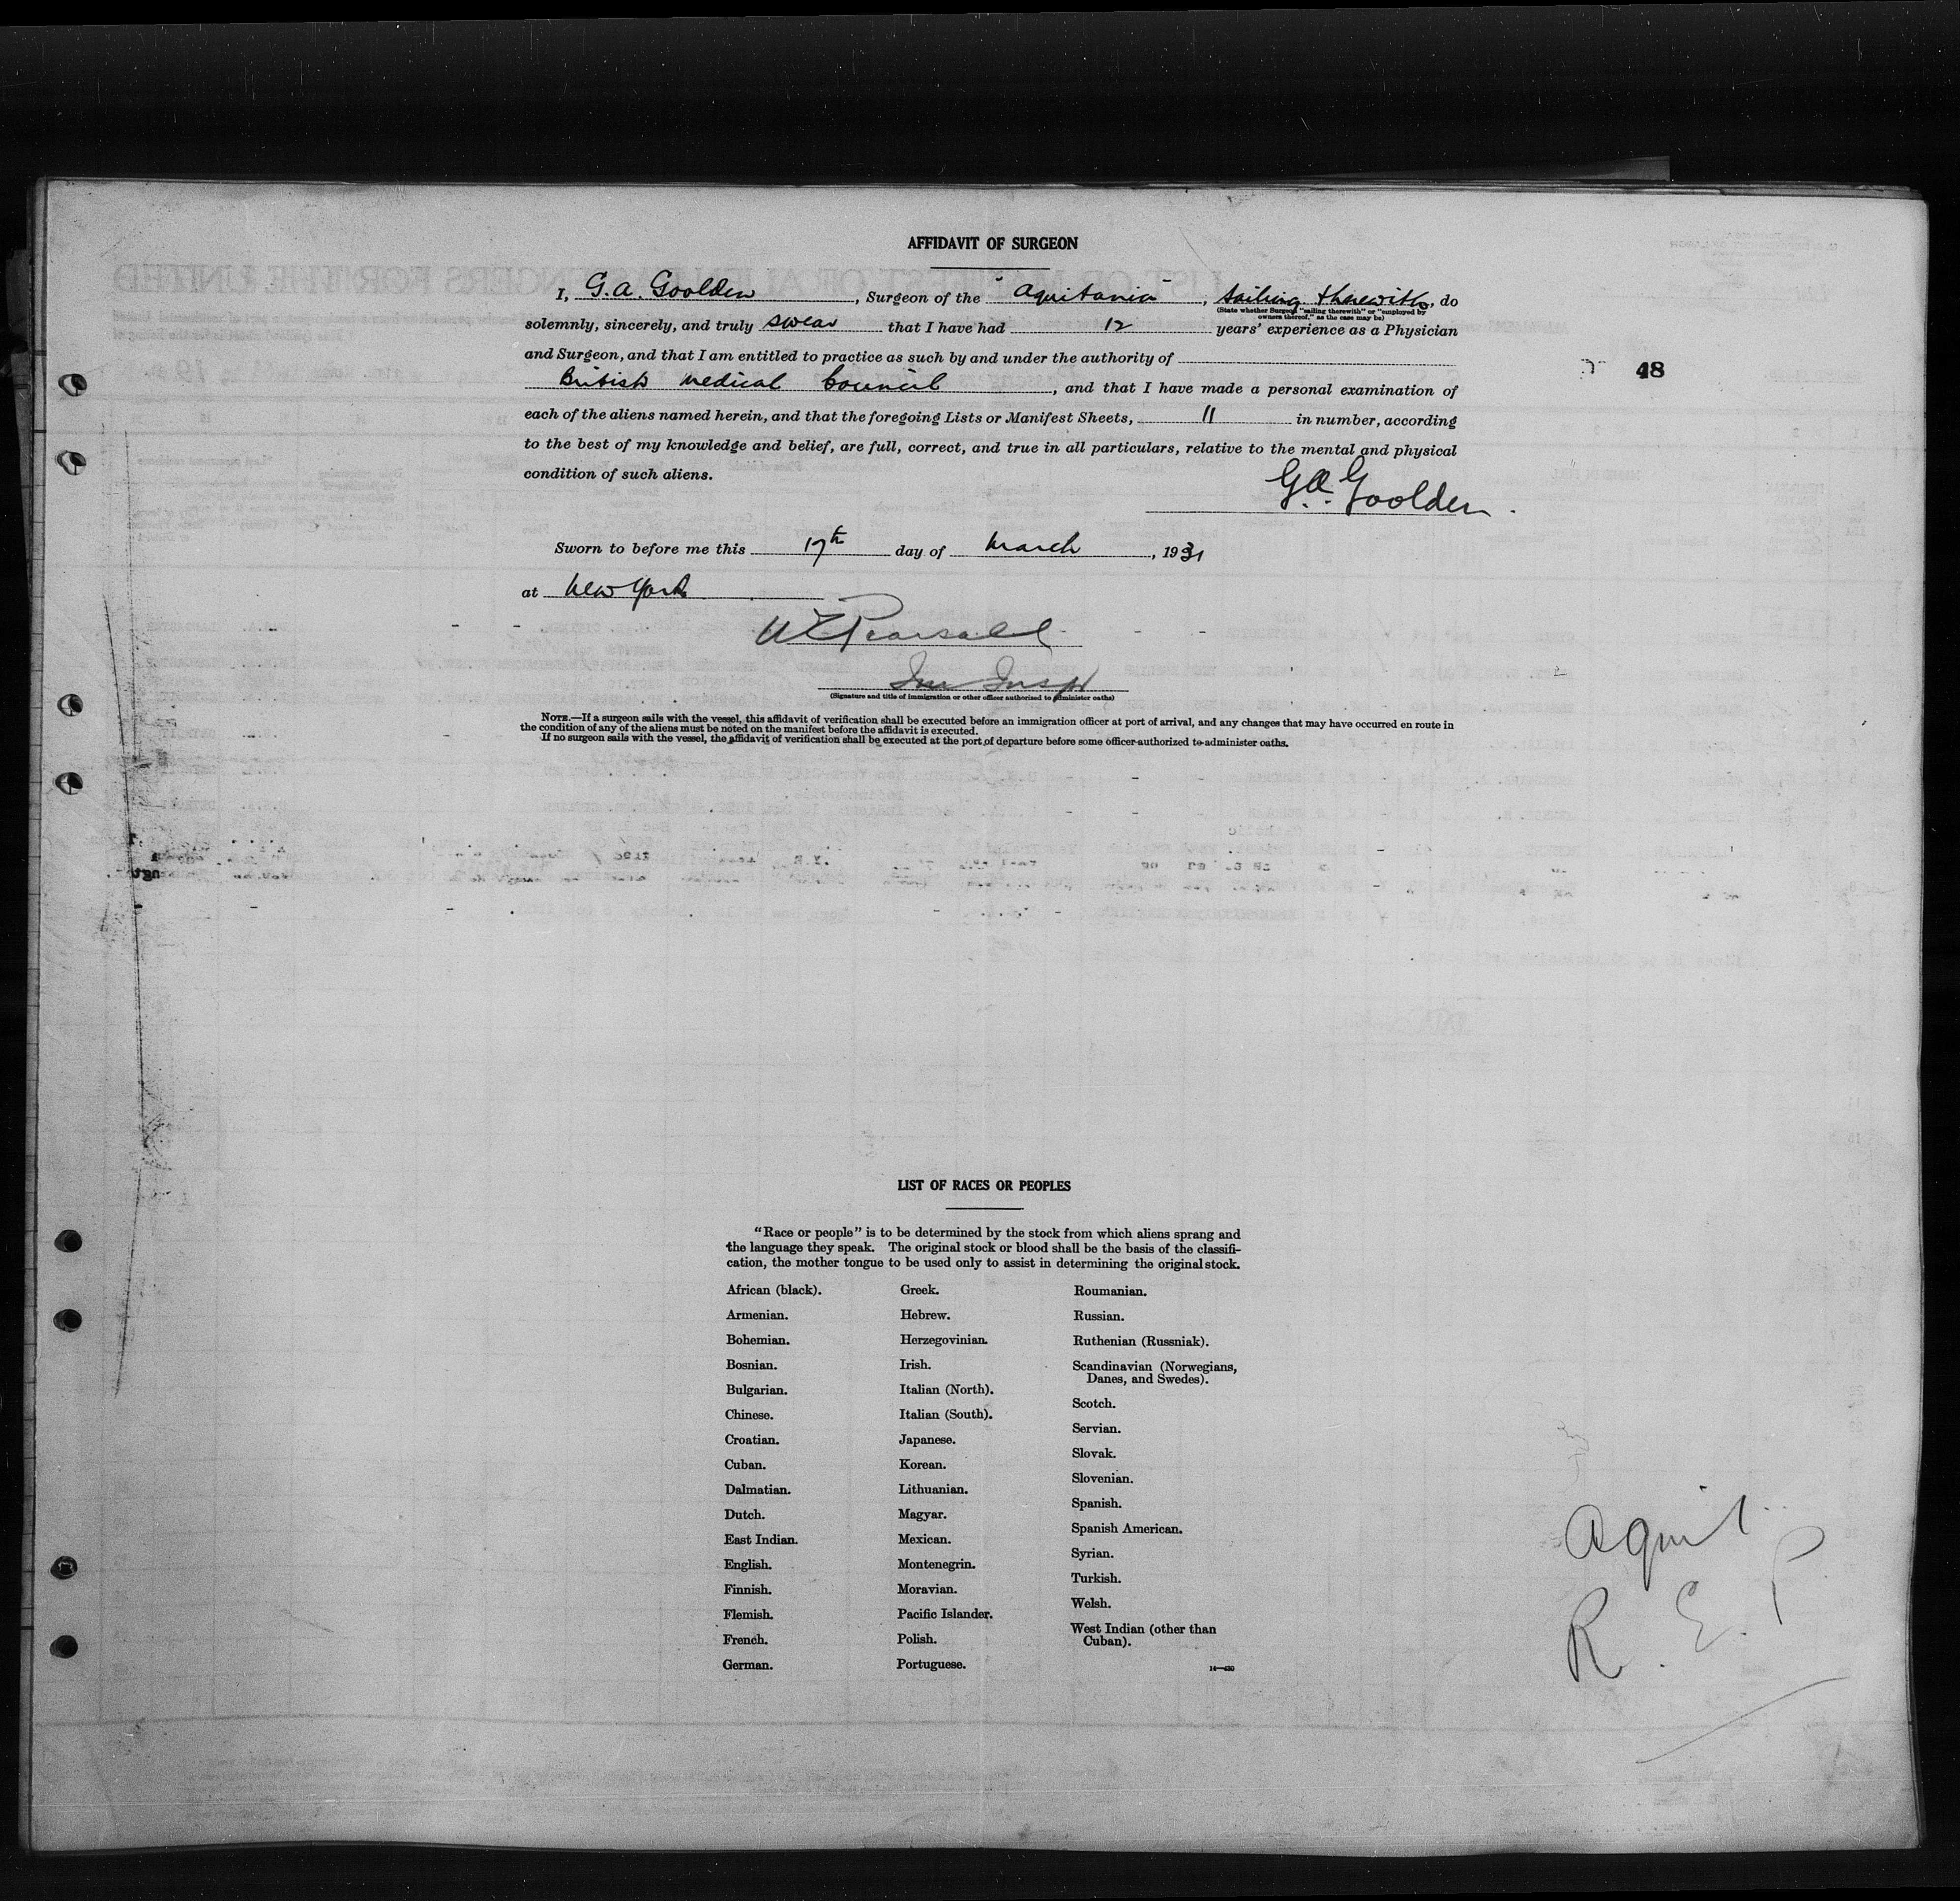 AFFIDAVIT OF SURGEON
I, G. A. Goolden, Surgeon of the "Aquitania", sailing therewith, do
(State whether Surgeon "sailing therewith" or "employed by
owners thereof," as the case may be)
solemnly, sincerely, and truly swear that I have had 12 years' experience as a Physician
and Surgeon, and that I am entitled to practice as such by and under the authority of
British Medical Council, and that I have made a personal examination of
48
each of the aliens named herein, and that the foregoing Lists or Manifest Sheets, 11 in number, according
to the best of my knowledge and belief, are full, correct, and true in all particulars, relative to the mental and physical
condition of such aliens.
G.A. Goolden.
Sworn to before me this 17th day of March, 1931
at New York
W E Pearsall
Imm Inspr
(Signature and title of immigration or other officer authorized to administer oaths)
NOTE.—If a surgeon sails with the vessel, this affidavit of verification shall be executed before an immigration officer at port of arrival, and any changes that may have occurred en route in
the condition of any of the aliens must be noted on the manifest before the affidavit is executed.
If no surgeon sails with the vessel, the affidavit of verification shall be executed at the port of departure before some officer authorized to administer oaths.
LIST OF RACES OR PEOPLES
"Race or people" is to be determined by the stock from which aliens sprang and
the language they speak. The original stock or blood shall be the basis of the classifi-
cation, the mother tongue to be used only to assist in determining the original stock.
African (black).
Armenian.
Bohemian.
Bosnian.
Bulgarian.
Chinese.
Croatian.
Cuban.
Dalmatian.
Dutch.
East Indian.
English.
Finnish.
Flemish.
French.
German.
Greek.
Hebrew.
Herzegovinian.
Irish.
Italian (North).
Italian (South).
Japanese.
Korean.
Lithuanian.
Magyar.
Mexican.
Montenegrin.
Moravian.
Pacific Islander.
Polish.
Portuguese.
Roumanian.
Russian.
Ruthenian (Russniak).
Scandinavian (Norwegians,
Danes, and Swedes).
Scotch.
Servian.
Slovak.
Slovenian.
Spanish.
Spanish American.
Syrian.
Turkish.
Welsh.
West Indian (other than
Cuban).
Aquit.
R. E. P